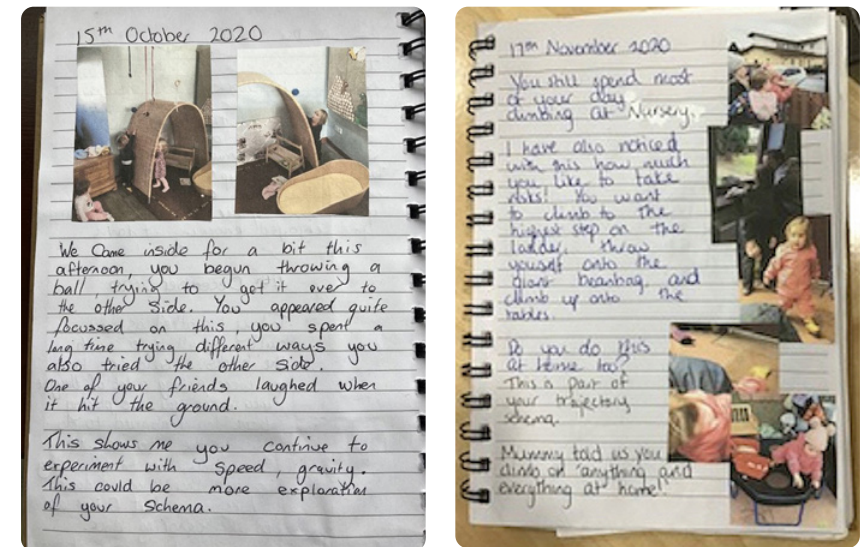 15th October 2020
We Came inside for a bit this
afternoon, you begun throwing a
ball, trying to get it over to
the other side. You appeared quite
focussed on this, you spent a
long time trying different ways you
also tried the other side.
One of your friends laughed when
it hit the ground.
This shows me you continue to
experiment with speed, gravity.
This could be more exploration
of your schema.
17th November 2020
You still spend most
of your day
climbing at Nursery.
I have also noticed
with this how much
you like to take
risks! You want
to climb to the
highest step on the
ladder, throw
yourself onto the
giant beanbag and
climb up onto the
tables.
Do you do this
at home too?
This is part of
your trajectory
schema.
Mummy told us you
climb on "anything and
everything at home!"